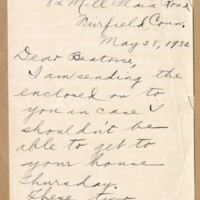 82 Mill Plain Road
Fairfield Conn.
May 28, 1932
Dear Beatrice,
I am sending the
enclosed on to
you in case I
shouldn't be
able to get to
your house
Thursday.
These two